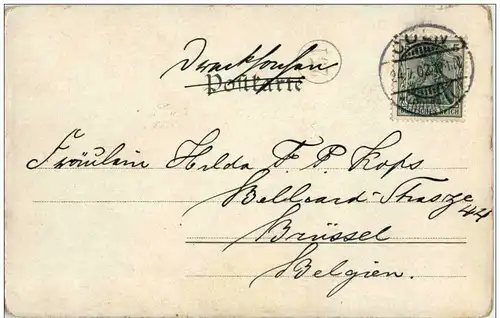 Drucksachen
Postkarte
CÖLN
Fräulein Hilda F. P. Kops
Belliard-Strasze 44
Brüssel
Belgien.